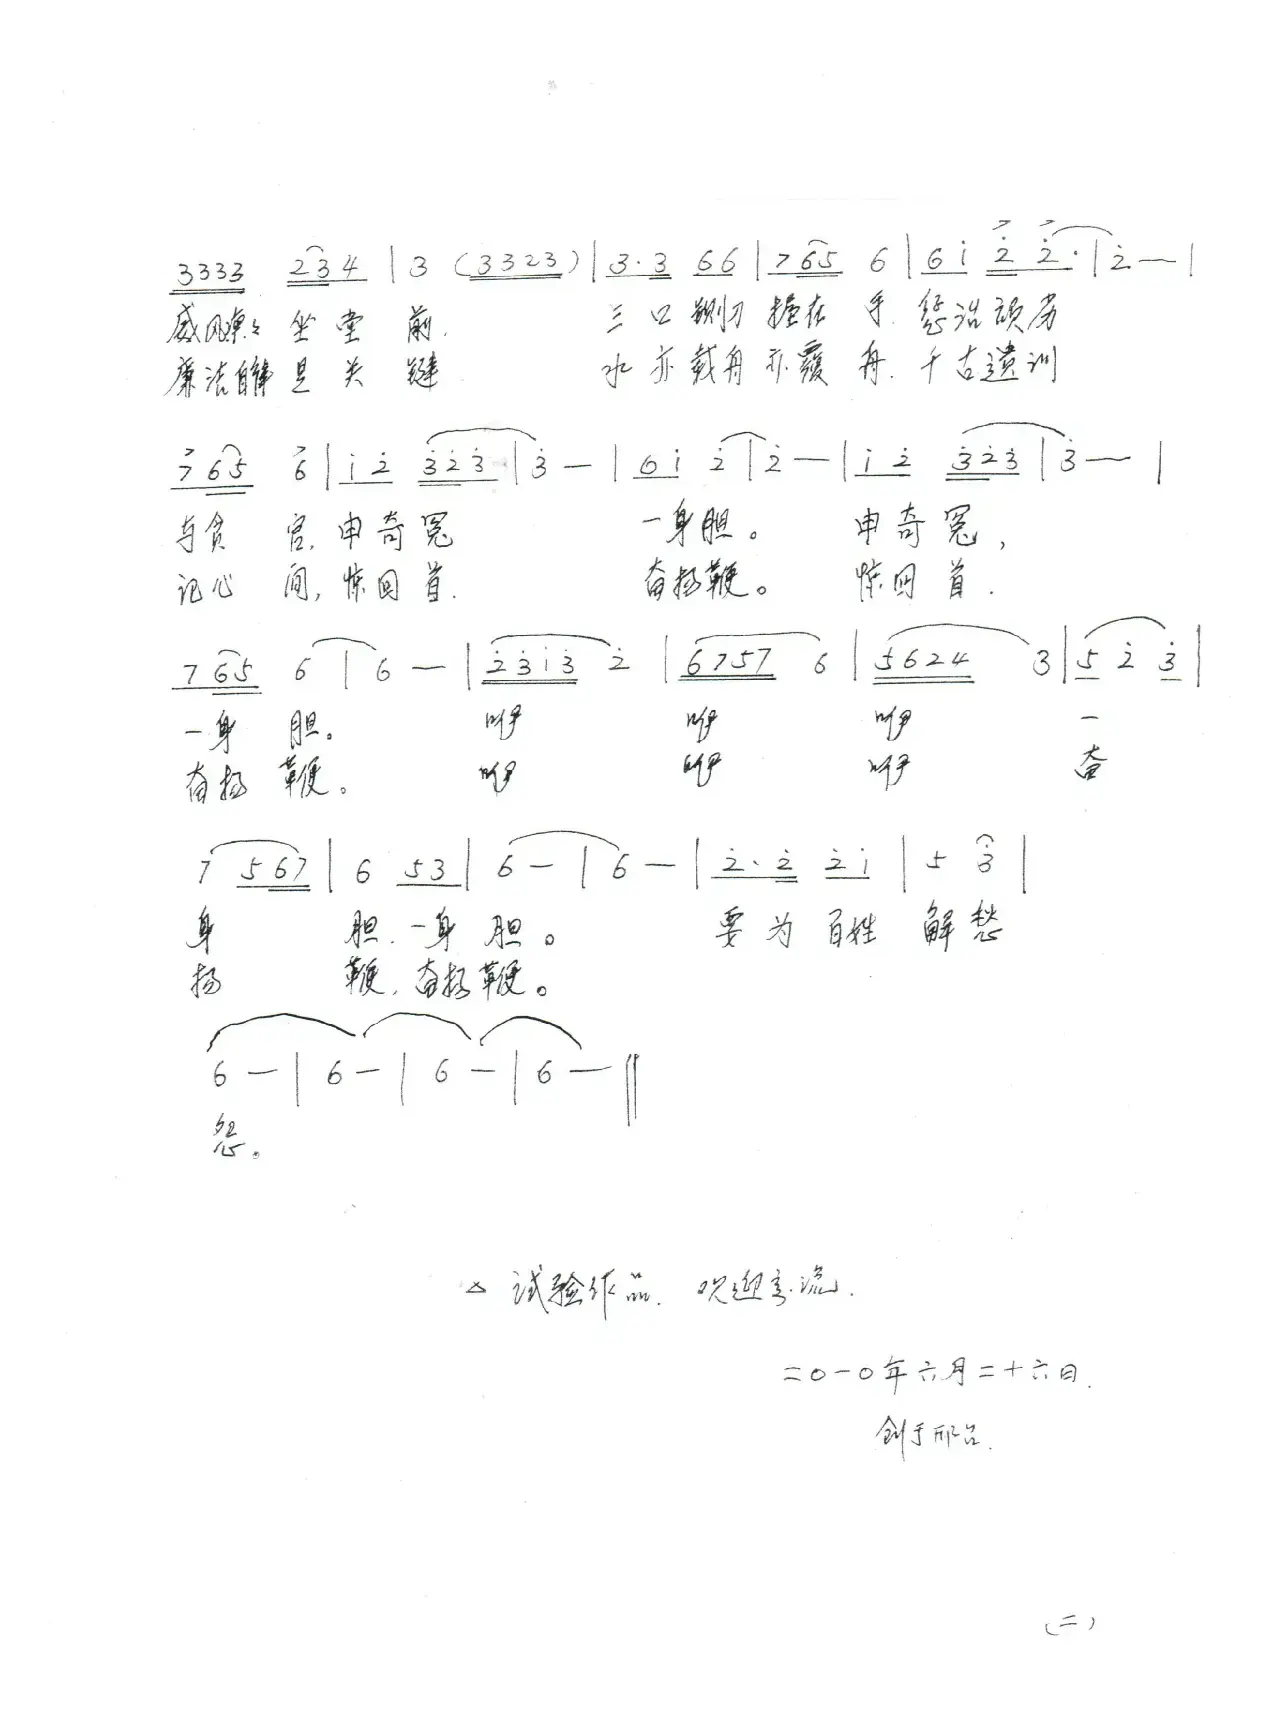 3333 234 | 3 (3323) | 3·3 66 | 765 6 | 6i 22· | 2 — |
威风凛々坐堂前. 三口铡刀握在手. 惩治顽劣
廉洁自律是关键 水亦载舟亦覆舟. 千古遗训
765 6 | i2 323 | 3 — | 6i 2 | 2 — | i2 323 | 3 — |
与贪官, 申奇冤 一身胆。 申奇冤,
记心间, 惊回首. 奋扬鞭。 惊回首.
765 6 | 6 — | 23i3 2 | 6757 6 | 5624 3 | 5 2 3 |
一身胆。 咿 咿 咿 一
奋扬鞭。 咿 咿 咿 奋
7 567 | 6 53 | 6 — | 6 — | 2·2 2i | 5 3 |
身 胆. 一身胆。 要为百姓解愁
扬 鞭, 奋扬鞭。
6 — | 6 — | 6 — | 6 — ‖
怨。
△ 试验作品. 欢迎交流.
二〇一〇年六月二十六日.
创于邢台.
(二)